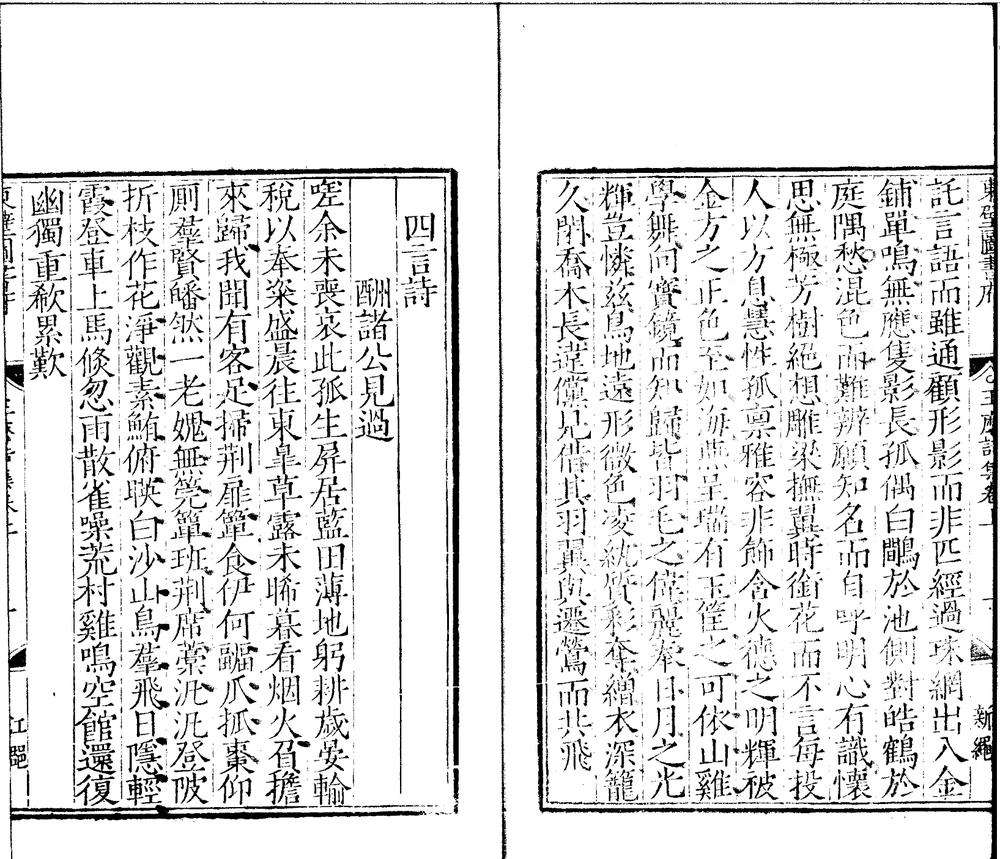 東壁圖書府
王右丞詩集卷二
十
新繩
託言語而雖通顧形影而非匹經過珠網出入金
鋪單鳴無應隻影長孤偶白鷴於池側對皓鶴於
庭隅愁混色而難辨願知名而自呼明心有識懷
思無極芳樹絕想雕梁撫翼時銜花而不言每投
人以方息慧性孤稟雅容非飾含火德之明輝被
金方之正色至如海燕呈瑞有玉筐之可依山雞
學舞向寶鏡而知歸皆羽毛之偉麗奉日月之光
輝豈憐茲鳥地遠形微色凌紈質彩奪繒衣深籠
久閉喬木長違儻見借其羽翼與遷鶯而共飛
四言詩
酬諸公見過
嗟余未喪哀此孤生屏居藍田薄地躬耕歲晏輸
稅以奉粢盛晨往東皐草露未晞暮看烟火負擔
來歸我聞有客足掃荆扉簞食伊何疈瓜抓棗仰
厠羣賢皤然一老媿無莞簟班荆席藁汎汎登陂
折枝作花淨觀素鮪俯暎白沙山鳥羣飛日隱輕
霞登車上馬倐忽雨散雀噪荒村雞鳴空館還復
幽獨重欷累歎